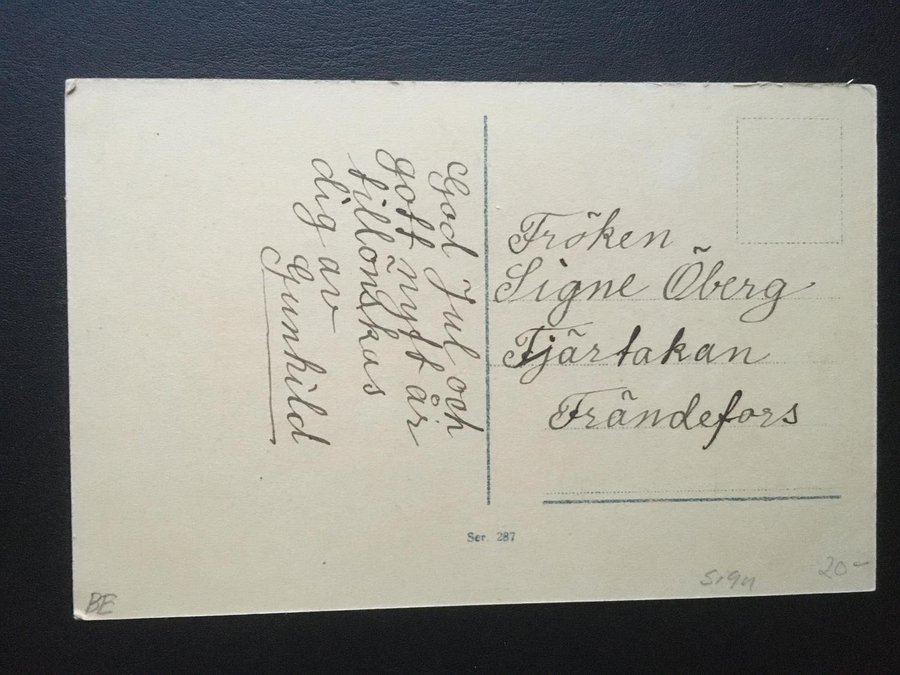 God Jul och
gott nytt år
tillönskus
dig av
Gunhild
Fröken
Signe Öberg
Fjärtakan
Frändefors
Ser. 287
BE
Sign
20-